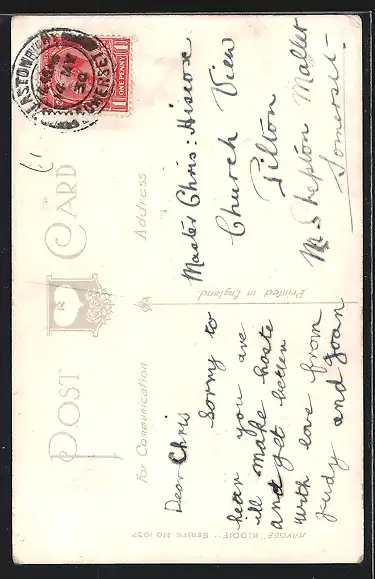 POST CARD
For Communication
Address
Dear Chris
Sorry to
hear you are
ill make haste
and get better
with love from
Judy and Joan
Master Chris: Hiscox
Church View
Pilton
Nr Shepton Mallet
Somerset
Printed in England.
KAYGEE "KIDDIE" SERIES No 1037
ONE PENNY
1 1
GLASTONBURY
SOMERSET
30